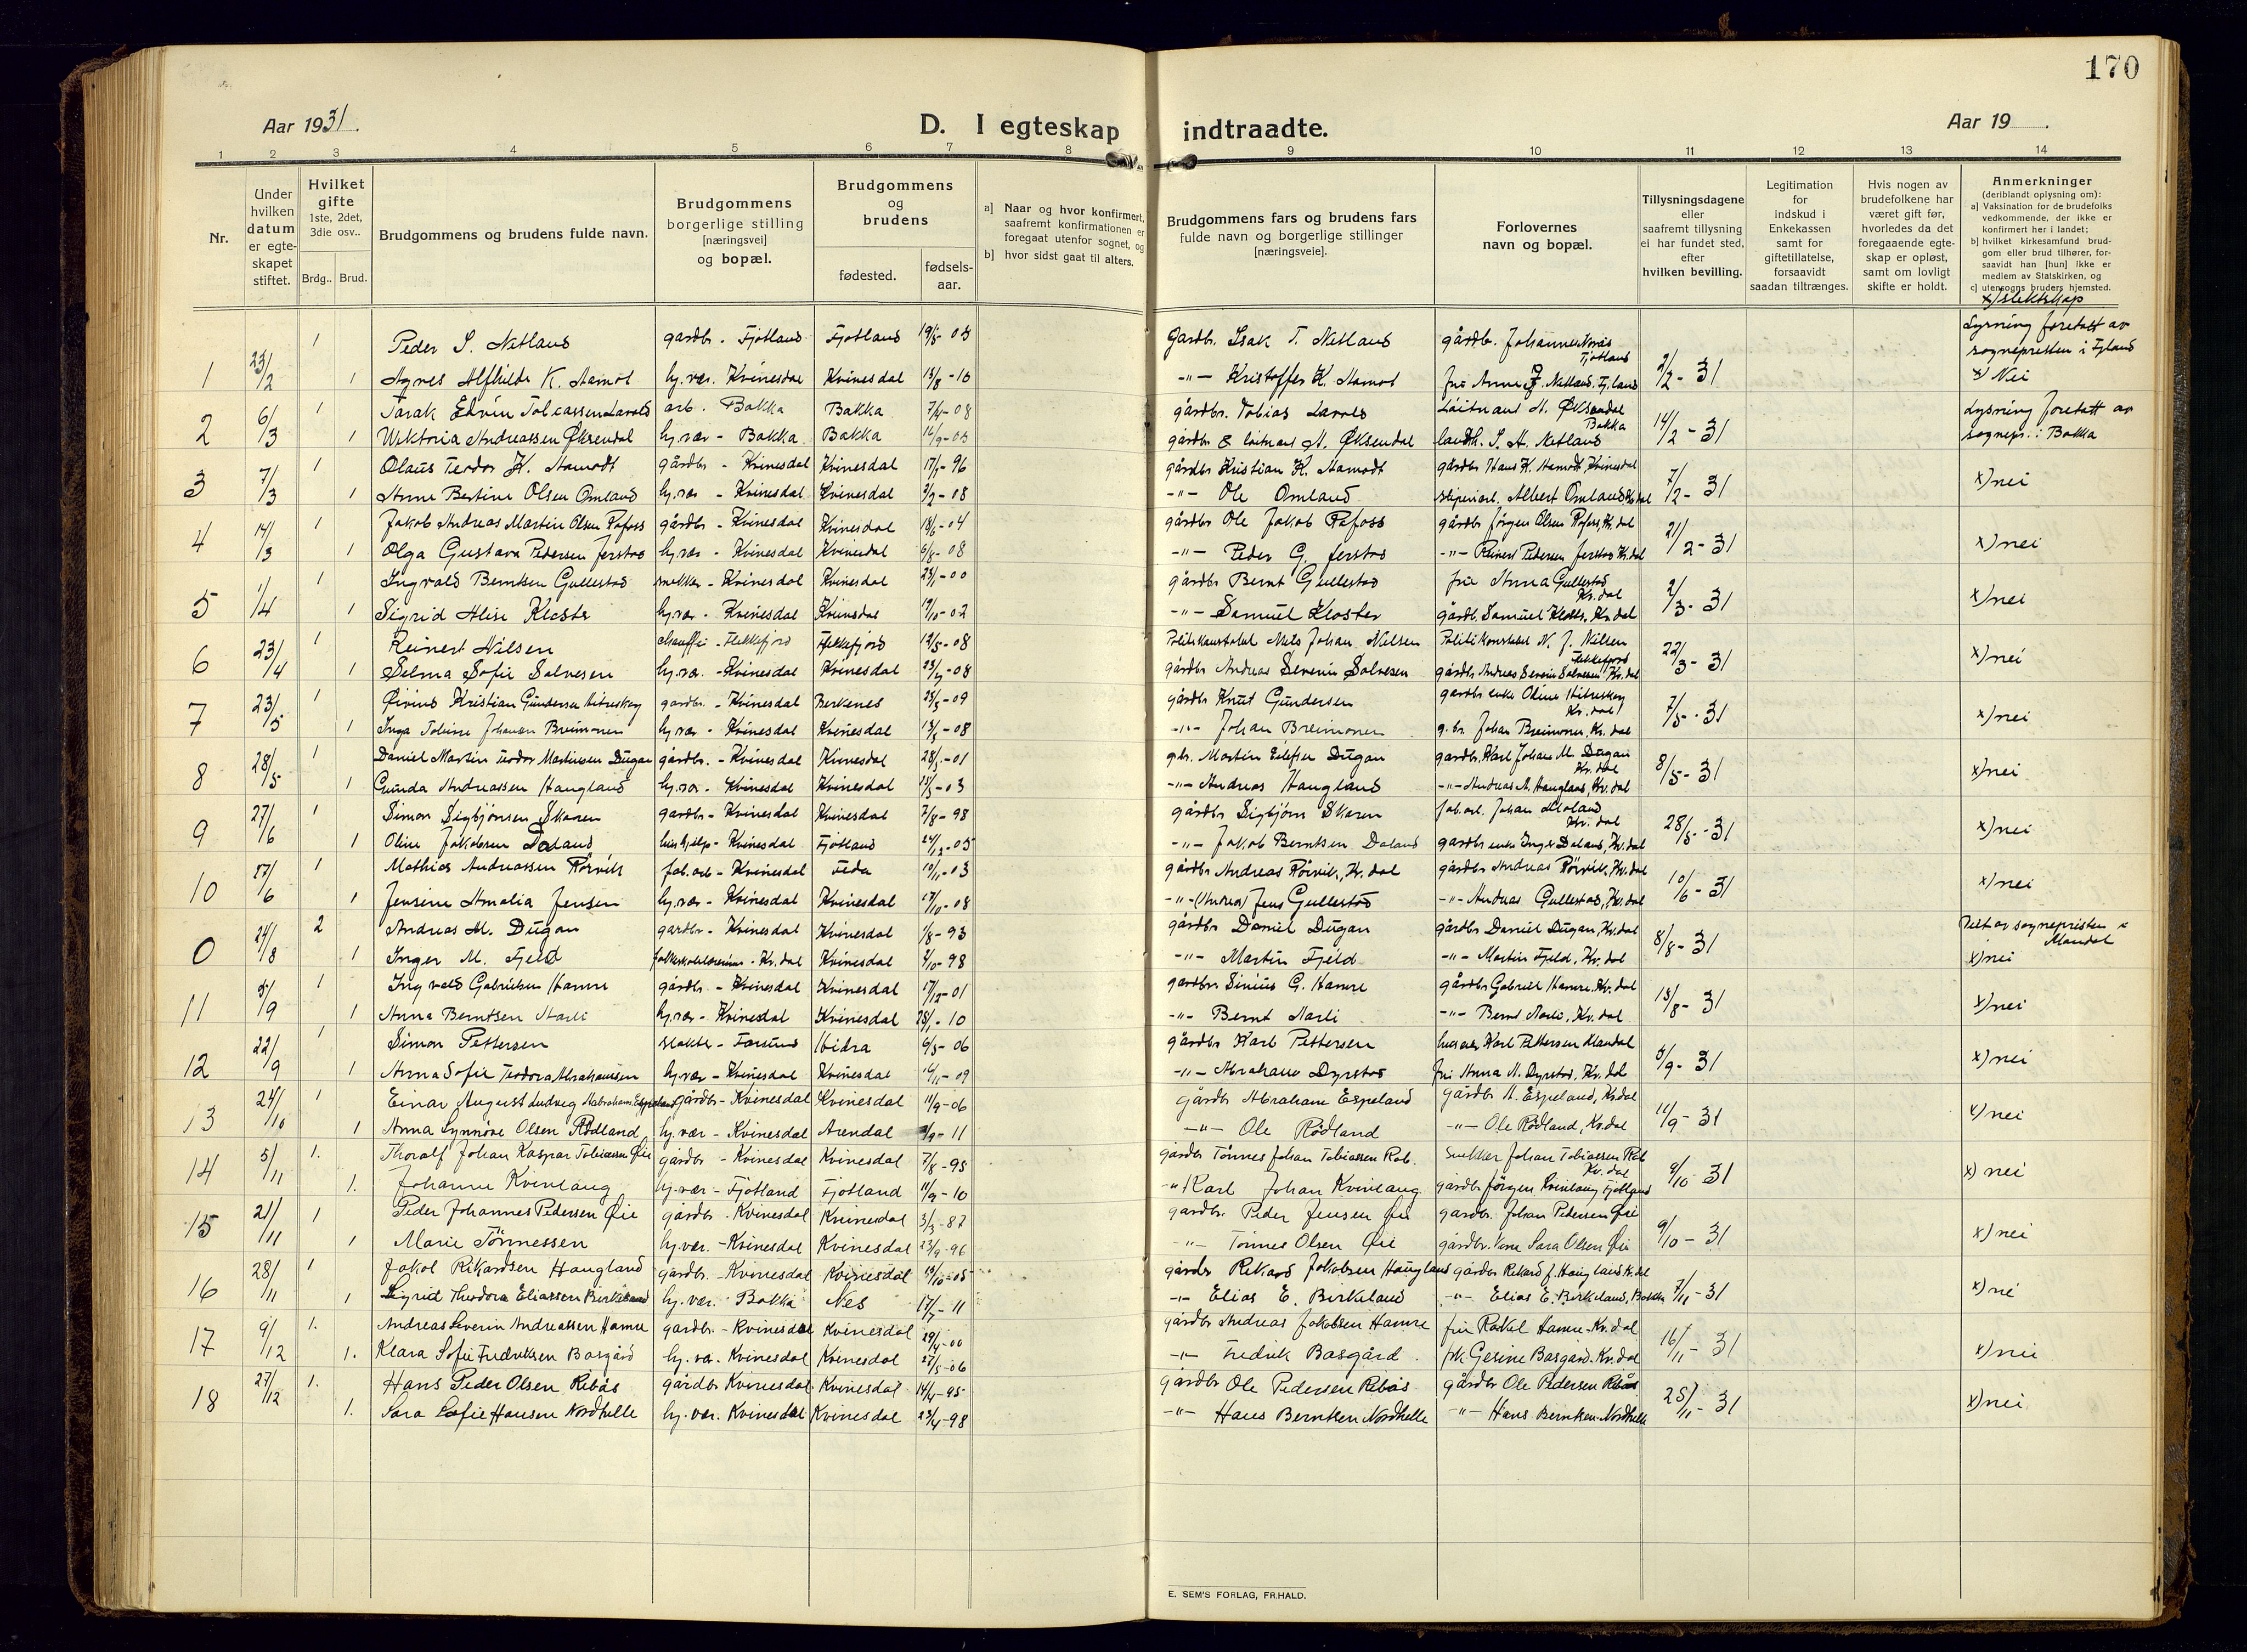 170
Aar 1931.
D. I egteskap indtraadte.
Aar 19
1 2 3 4 5 6 7 8 9 10 11 12 13 14
Nr.
Under hvilken datum er egte-skapet stiftet.
Hvilket gifte 1ste, 2det, 3die osv..
Brdg.. Brud.
Brudgommens og brudens fulde navn.
Brudgommens borgerlige stilling [næringsvei] og bopæl.
Brudgommens og brudens
fødested. fødsels-aar.
a] Naar og hvor konfirmert, saafremt konfirmationen er foregaat utenfor sognet, og
b] hvor sidst gaat til alters.
Brudgommens fars og brudens fars fulde navn og borgerlige stillinger [næringsveie].
Forlovernes navn og bopæl.
Tillysningsdagene eller saafremt tillysning ei har fundet sted, efter hvilken bevilling.
Legitimation for indskud i Enkekassen samt for giftetillatelse, forsaavidt saadan tiltrænges.
Hvis nogen av brudefolkene har været gift før, hvorledes da det foregaaende egte-skap er opløst, samt om lovligt skifte er holdt.
Anmerkninger (deriblandt oplysning om):
a] Vaksination for de brudefolks vedkommende, der ikke er konfirmert her i landet;
b] hvilket kirkesamfund brud-gom eller brud tilhører, for-saavidt han [hun] ikke er medlem av Statskirken, og
c] utensogns bruders hjemsted.
x) slektskap
1 Peder I. Netland gardbr. - Fjotland Fjotland Gardbr. Isak T. Netland gårdb. Johannes Fjotland Lysning foretatt av sognepresten i Fjotland
1 23/2 1 Agnes Alfhilde K. Aamot hj. vær. Kvinesdal Kvinesdal 13/8 - 10 -"- Kristoffer K. Aamot fru Anne J. Netland, Fj.land 2/2 - 31 x) Nei
1 Tarak Edvin Tobiassen arb. Bakka Bakka gårdbr. Tobias Løitnant A. Øksendal Bakka Lysning foretatt av
2 6/3 1 Wiktoria Andreassen Øksendal hj. vær - Bakka Bakka gårdbr & løitnant A. Øksendal landh. S. A. Netland 14/2 - 31 sognepr. i Bakka
1 Olaus Teodor K. Aamodt gårdbr - Kvinesdal Kvinesdal 17/1 - 96 gårdbr Kristian K. Aamodt gårdbr Hans K. Aamodt, Kvinesdal
3 7/3 1 Anne Bertine Olsen Omland hj. vær - Kvinesdal Kvinesdal 2/2 - 08 -"- Ole Omland Albert Omland Kv.dal 7/2 - 31 x) nei
1 Jakob Andreas Martin Olsen Rafoss gårdbr - Kvinesdal Kvinesdal 18/6 - 04 gårdbr Ole Jakob Rafoss gårdbr Jørgen Olsen Rafoss, Kv.dal
4 14/3 1 Olga Gustava Pedersen Jerstad hj.vær - Kvinesdal Kvinesdal 6/8 - 08 -"- Peder G. Jerstad -"- Reinert Pedersen Jerstad Kv.dal 21/2 - 31 x) nei
1 Ingvald Berntsen Gullestad snekker - Kvinesdal Kvinesdal 23/1 - 00 gårdbr Bernt Gullestad fru Anna Gullestad Kv.dal
5 1/4 1 Sigrid Alise Kloster hj.vær - Kvinesdal Kvinesdal 19/10 - 02 -"- Samuel Kloster gårdb. Samuel Kloster, Kv.dal 2/3 - 31 x) nei
1 Reinert Nilsen - Flekkefjord Flekkefjord 12/5 - 08 Politikonstabel Nils Johan Nilsen Politikonstabel N. J. Nilsen Flekkefjord
6 23/4 1 Selma Sofie Salvesen hj.vær. - Kvinesdal Kvinesdal 23/7 - 08 gårdbr Andreas Severin Salvesen gårdbr Andreas Severin Salvesen Kv.dal 22/3 - 31 x) nei
1 Øivind Kristian Gundersen gardbr. - Kvinesdal Berkenes 25/5 - 09 gårdbr Knut Gundersen gardbr enke Oline Kv.dal
7 23/5 1 Inga Tobine Johansen Breimoen hj.vær - Kvinesdal Kvinesdal 13/5 - 08 -"- Johan Breimoen g.br. Johan Breimoen, Kv. dal 7/5 - 31 x) nei
1 Daniel Martin Teodor Martinsen Dugan gårdbr. - Kvinesdal Kvinesdal 28/3 - 01 gbr. Martin Eilefsen Dugan gardbr. Karl Johan M. Dugan Kv.dal
8 28/5 1 Gunda Andreassen Haugland hj.vær - Kvinesdal Kvinesdal -03 -"- Andreas Haugland -"- Andreas A. Haugland, Kv.dal 8/5 - 31 x) nei
1 Simon Sigbjørnsen Skaren gardbr - Kvinesdal Kvinesdal 7/8 - 98 gårdbr Sigbjørn Skaren fab.arb. Johan Kv. dal
9 27/6 1 Oline Jakobsen Daland hushjelp - Kvinesdal Fjotland 24/12 - 05 -"- Jakob Berntsen Daland gardbr enke Daland, Kv.dal 28/5 - 31 x) nei
1 Mathias Andreassen Rørvik fab.arb - Kvinesdal Feda 10/11 - 03 gårdbr Andreas Rørvik, Kv. dal gårdbr Andreas Rørvik, Kv.dal
10 27/6 1 Jensine Amalia Jensen hj.vær - Kvinesdal Kvinesdal 17/10 - 08 -"- (Andreas) Jens Gullestad -"- Andreas Gullestad, Kv.dal 10/6 - 31 x) nei
2 Andreas M. Dugan gardbr - Kvinesdal Kvinesdal 1/8 - 93 gårdbr Daniel Dugan gårdbr Daniel Dugan, Kv.dal Viet av sognepresten i Mandal
0 24/8 1 Inger M. Fjeld folkeskolelærerinne - Kv.dal Kvinesdal 2/10 - 98 -"- Martin Fjeld -"- Martin Fjeld, Kv.dal 8/8 - 31 x) nei
1 Ingvald Gabrielsen Hamre gårdbr - Kvinesdal Kvinesdal 17/12 - 01 gardbr Sinius G. Hamre gårdbr Gabriel Hamre, Kv.dal
11 5/9 1 Anna Berntsen Narli hj.vær - Kvinesdal Kvinesdal - 10 -"- Bernt Narli -"- Bernt Narli, Kv.dal 15/8 - 31 x) nei
1 Simon Pettersen slakter - Farsund Hidra 6/5 - 06 gårdbr Karl Pettersen Karl Pettersen Mandal
12 22/9 1 Anna Sofie Teodora Abrahamsen hj.vær - Kvinesdal Kvinesdal 16/11 - 09 -"- Abraham Dyrstad fru Anna A. Dyrstad, Kv. dal 5/9 - 31 x) nei
1 Einar August Ludvig Abrahams. Espeland gårdbr - Kvinesdal Kvinesdal 11/9 - 06 gårdbr Abraham Espeland gårdbr A. Espeland, Kv.dal
13 24/10 1 Anna Synnøve Olsen Rødland hj. vær - Kvinesdal Arendal /9 - 11 -"- Ole Rødland -"- Ole Rødland, Kv.dal 11/9 - 31 x) nei
1. Thoralf Johan Kaspar Tobiassen Øie gårdbr - Kvinesdal Kvinesdal 7/8 - 95 gårdbr Tønnes Johan Tobiassen Rob. Snekker Johan Tobiassen Rob Kv.dal
14 5/11 1. Johanne Kvinlaug hj.vær - Fjotland Fjotland 11/9 - 10 -"- Karl Johan Kvinlaug gårdbr Jørgen Kvinlaug Fjotland 9/10 - 31 x) nei
1 Peder Johannes Pedersen Øie gårdbr - Kvinesdal Kvinesdal 3/3 - 87 gardbr. Peder Jensen Øie gardbr. Johan Pedersen Øie
15 21/11 1 Marie Tønnessen hj.vær. - Kvinesdal Kvinesdal 23/9 - 96 -"- Tønnes Olsen Øie gårdbr. kone Sara Olsen Øie 9/10 - 31 x) nei
1 Jakob Rikardsen Haugland gårdbr. - Kvinesdal Kvinesdal 13/10 - 05 gårdbr Rikard Jakobsen Haugland gårdbr Rikard J. Haugland Kv.dal
16 28/11 1 Sigrid Theodora Eliassen Birkeland hj.vær. Bakka Nes 17/7 - 11 -"- Elias E. Birkeland -"- Elias E. Birkeland, Bakka 7/11 - 31 x) nei
1. Andreas Severin Andreassen Hamre gardbr. - Kvinesdal Kvinesdal 29/4 - 00 gårdbr Andreas Jakobsen Hamre fru Rakel Hamre - Kv.dal
17 9/12 1. Klara Sofie Fredriksen Basgård hj. vær. Kvinesdal Kvinesdal 27/5 - 06 -"- Fredrik Basgård frk Gesine Basgård. Kv.dal 16/11 - 31 x) nei
1. Hans Peder Olsen Rebås gårdbr Kvinesdal Kvinesdal 14/4 - 95 gårdbr Ole Pedersen Rebås gårdbr Ole Pedersen Rebås
18 27/12 1. Sara Sofie Hansen Nordhelle hj. vær. Kvinesdal Kvinesdal 23/4 - 98 -"- Hans Berntsen Nordhelle -"- Hans Berntsen Nordhelle 25/11 - 31 x) nei
E. SEM'S FORLAG, FR.HALD.